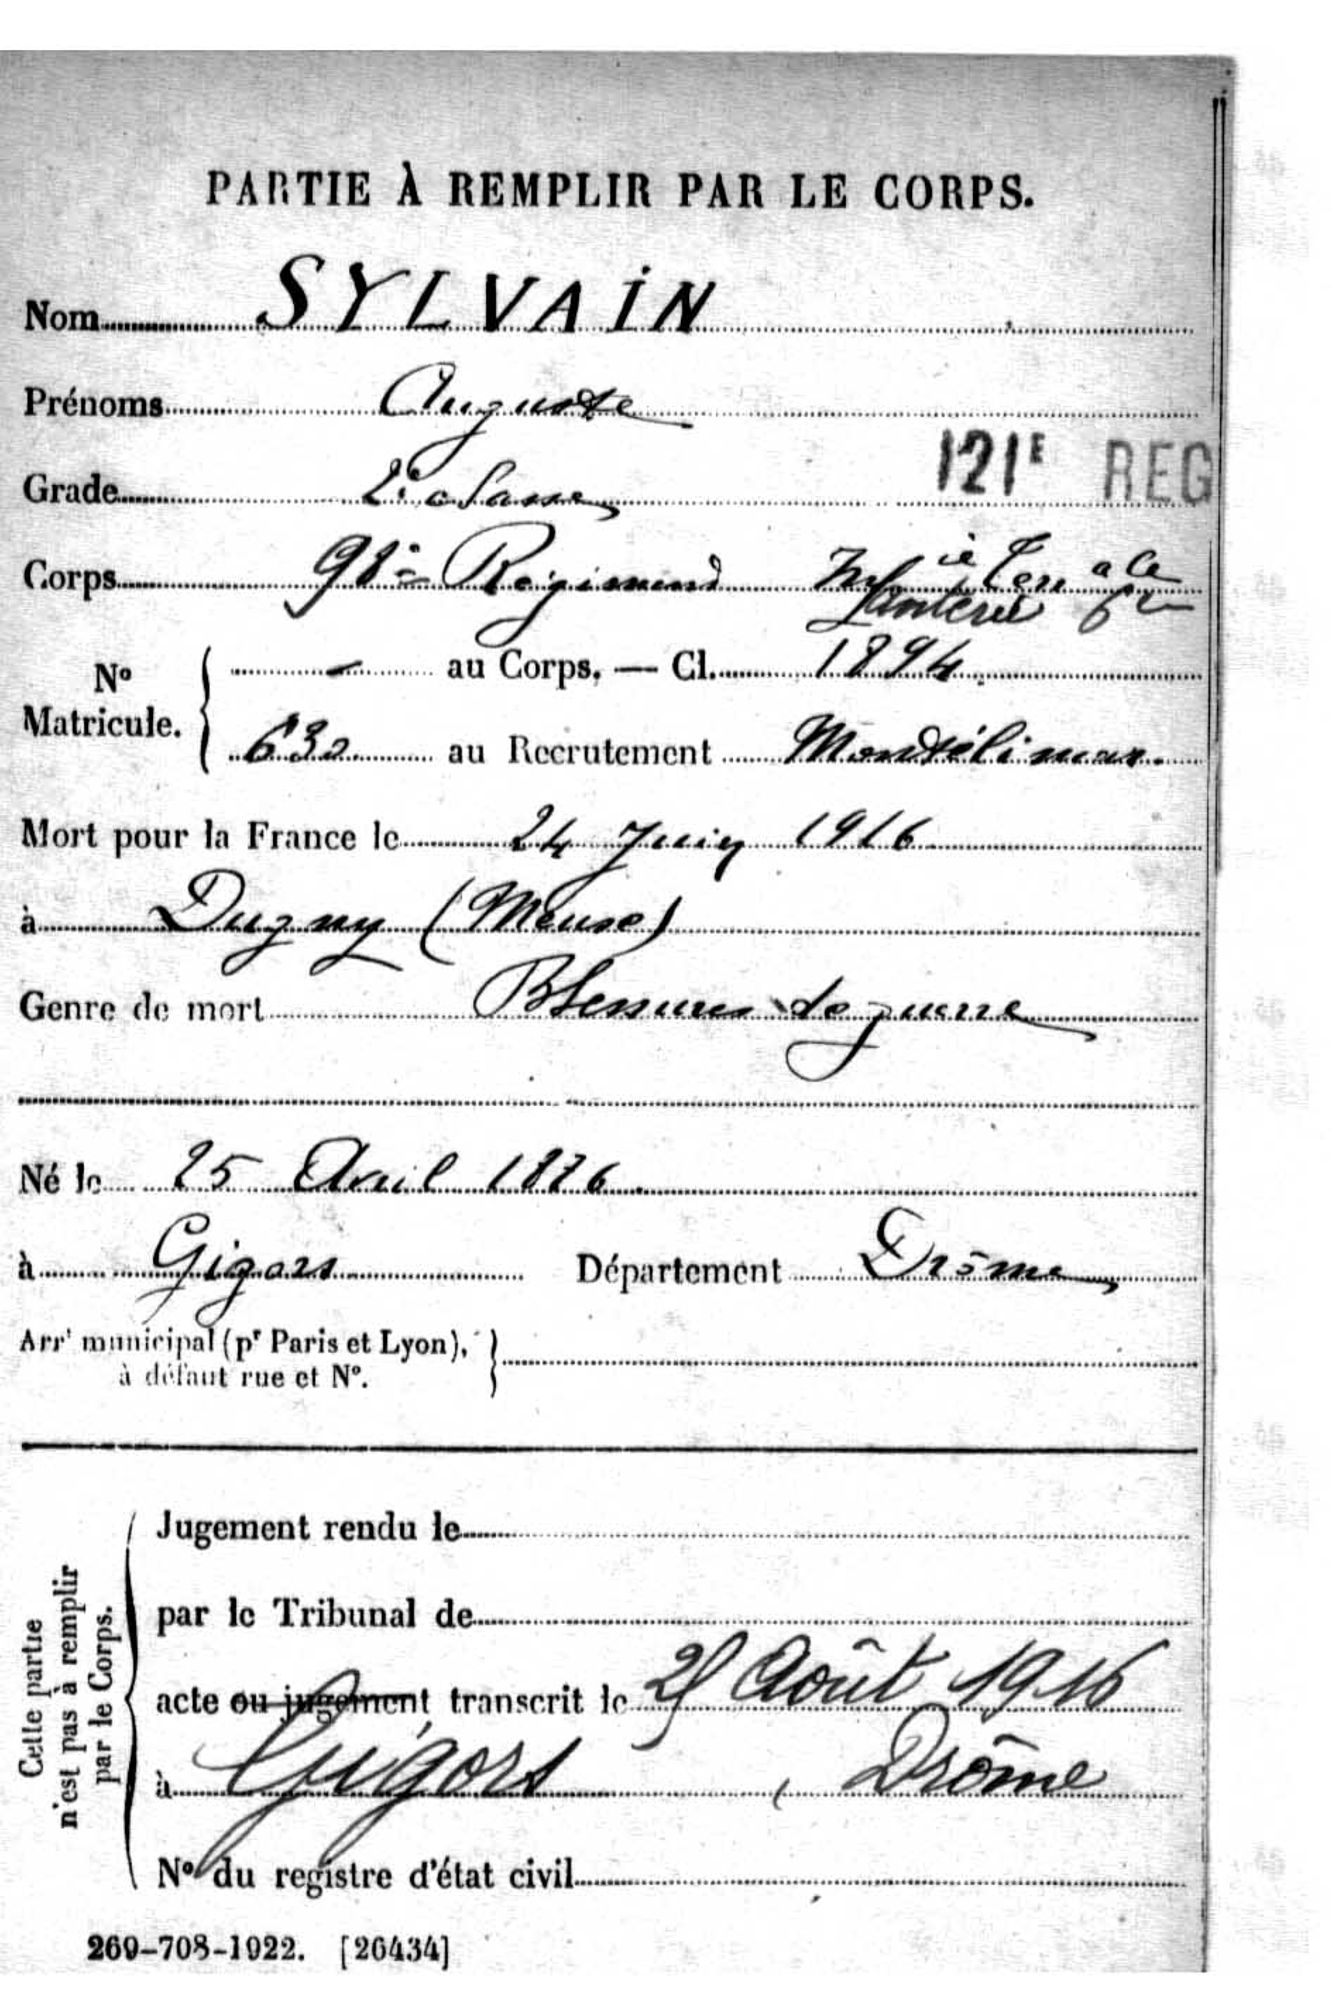 PARTIE À REMPLIR PAR LE CORPS.
Nom SYLVAIN
Prénoms Auguste
121E REG
Grade 2e classe
Corps 98e Régiment Infanterie Terr ale
6e
No Matricule. { — au Corps. — Cl. 1894
632 au Recrutement Montélimar.
Mort pour la France le 24 Juin 1916
à Dugny (Meuse)
Genre de mort Blessures de guerre
Né le 25 Avril 1876
à Gigors Département Drôme
Arrt municipal (pr Paris et Lyon), }
à défaut rue et No.
Cette partie n'est pas à remplir par le Corps.
Jugement rendu le
par le Tribunal de
acte ou jugement transcrit le Août 1916
à Gigors, Drôme
No du registre d'état civil
269-708-1922. [26434]